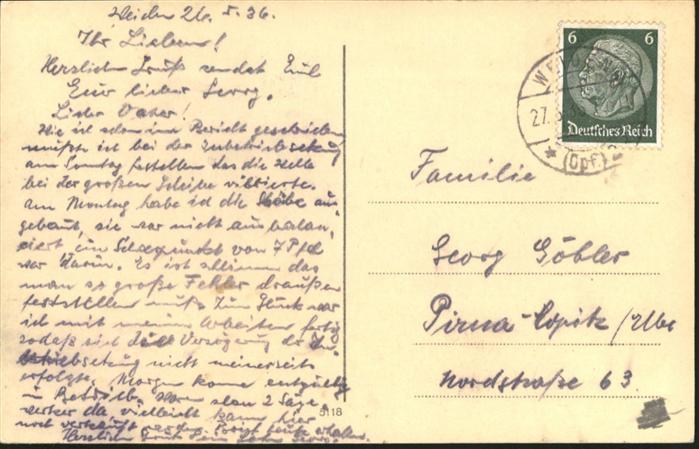 Weiden 26. 5. 36.
Ihr Lieben!
Herzlichen Gruß sendet Euch
Euer lieber Georg.
Lieber Vater!
Wie ich schon im Bericht geschrieben
mußte ich bei der Inbetriebsetzung
am Sonntag feststellen das die Welle
bei der großen Scheibe vibrierte.
Am Montag habe ich die Scheibe aus-
gebaut, sie war nicht ausbalan-
ciert, ein Schwerpunkt von 7 Pfd
war darin. Es ist schlimm das
man so große Fehler draußen
feststellen muß. Zum Glück war
ich mit meinen Arbeiten fertig
sodaß sich die Verzögerung der In-
betriebsetzung nicht meinerseits
erfolgte. Morgen komme entgültig
in Betrieb. Waren schon 2 Säge-
werker da, vielleicht kann hier
noch verkauft werden.
Herzlichen Gruß Dein Sohn Georg.
5118
6 6
Deutsches Reich
WEIDEN
27.5.
(Opf)
Familie
Georg Göbler
Pirna-Copitz/Elbe
Nordstraße 63.